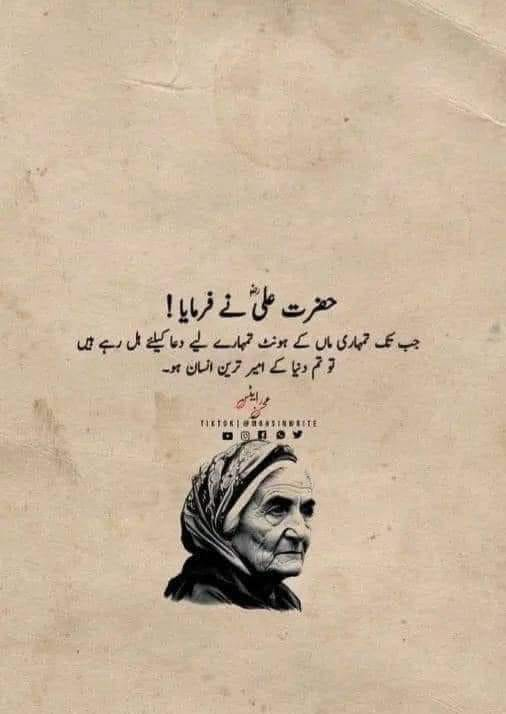 حضرت علیؓ نے فرمایا !
جب تک تمہاری ماں کے ہونٹ تمہارے لیے دعا کیلئے ہل رہے ہیں
تو تم دنیا کے امیر ترین انسان ہو۔
محسن رائیٹس
TIKTOK| @MOHSINWRITE